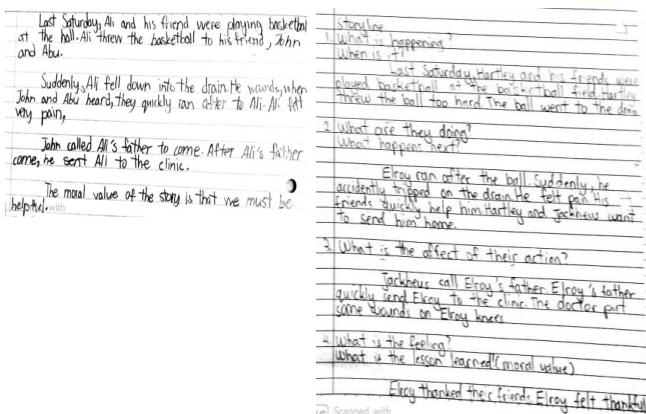 Last Saturday, Ali and his friend were playing basketball
at the hall. Ali threw the basketball to his friend, John
and Abu.
Suddenly, Ali fell down into the drain. He wounds, when
John and Abu heard, they quickly ran after to Ali. Ali felt
very pain,
John called Ali's father to come. After Ali's father
come, he sent Ali to the clinic.
The moral value of the story is that we must be
helpful.
Storyline
1. What is happening?
When is it?
Last Saturday, Hartley and his friends were
played basketball at the basketball field. Hartley
threw the ball too hard. The ball went to the drain
2. What are they doing?
What happens next?
Elroy ran after the ball. Suddenly, he
accidently tripped on the drain. He felt pain. His
friends quickly help him. Hartley and Jackheus want
to send him home.
3. What is the affect of their action?
Jackheus call Elroy's father. Elroy's father
quickly send Elroy to the clinic. The doctor put
some wounds on Elroy knees
4. What is the feeling?
What is the lesson learned? (moral value)
Elroy thanked their friends. Elroy felt thankful
Scanned with